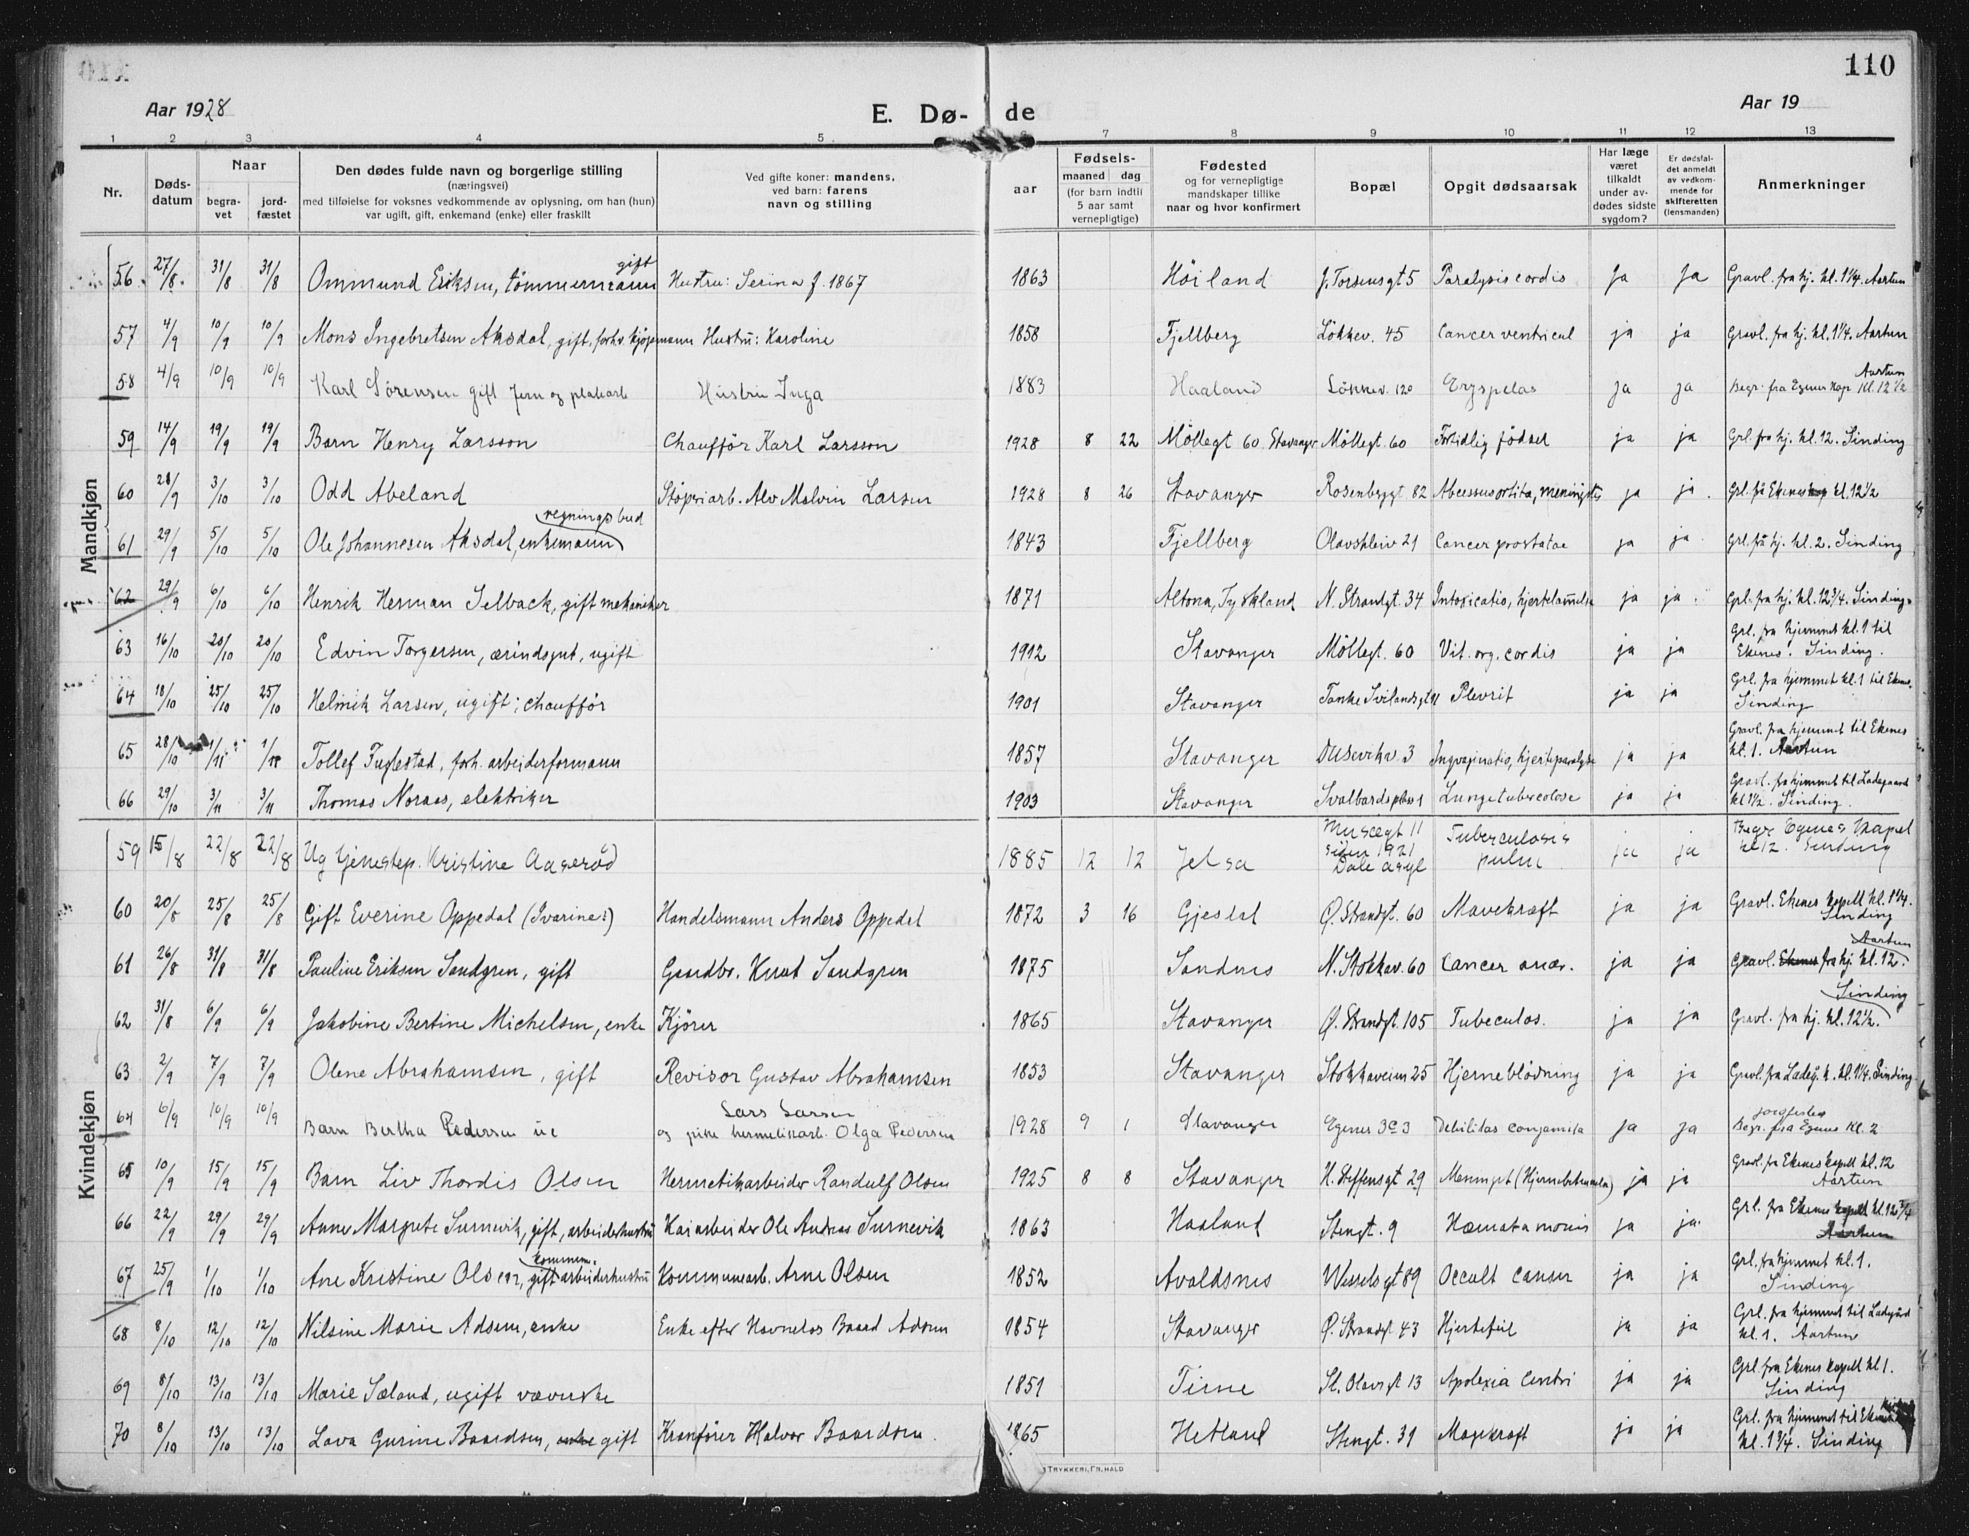 110
Aar 1928
E. Dø-
de
Aar 19
1 2 3 4 5 6 7 8 9 10 11 12 13
Nr.
Døds-
datum
Naar
begra-
vet
jord-
fæstet
Den dødes fulde navn og borgerlige stilling
(næringsvei)
med tilføielse for voksnes vedkommende av oplysning, om han (hun)
var ugift, gift, enkemand (enke) eller fraskilt
Ved gifte koner: mandens,
ved barn: farens
navn og stilling
aar
Fødsels-
maaned dag
(for barn indtil
5 aar samt
vernepligtige)
Fødested
og for vernepligtige
mandskaper tillike
naar og hvor konfirmert
Bopæl
Opgit dødsaarsak
Har læge
været
tilkaldt
under av-
dødes sidste
sygdom?
Er dødsfal-
det anmeldt
av vedkom-
mende for
skifteretten
(lensmanden)
Anmerkninger
Mandkjøn
56. 27/8. 31/8 31/8 Ommund Eriksen, tømmermann gift Hustru: Serina f. 1867 1863 Høiland J. Torsensgt 5 Paralysis cordis Ja Ja Gravl. fra hj. kl. 1 1/4. Aartun
57 4/9 10/9 10/9 Mons Ingebretsen Aksdal, gift, forhv. kjøpmann Hustru: Karoline 1858 Fjellberg Løkkev. 45 Cancer ventricul ja ja Gravl. fra hj. kl. 1 1/4. Aartun
58 4/9 10/9 10/9 Karl Sørensen gift Jern og platearb Hustru Inga 1883 Haaland Løkkev. 120 Eryspelas ja ja Begr. fra Egenes Kap. Kl. 12 1/2 Aartun
59 14/9 19/9 19/9 Barn Henry Larsson Chauffør Karl Larsson 1928 8 22 Møllegt 60 Stavanger Møllegt. 60 Fortidlig fødsel ja ja Grl. fra hj. kl. 12. Sinding
60 28/9 3/10 3/10 Odd Abeland Støperiarb. Alv Malvin Larsen 1928 8 26 Stavanger Rosenbergt. 82 Abcessus ortita, meningitis ja ja. Grl. fra Ekenes kap kl. 12 1/2
61 29/9 5/10 5/10 Ole Johannesen Aksdal, enkemann regningsbud 1843 Fjellberg Olavskleiv 21 Cancer prostatae ja ja Grl. fra hj. kl. 2. Sinding
62 29/9 6/10 6/10 Henrik Herman Selback, gift mekaniker 1871 Altona, Tyskland N. Strandgt. 34 Intoxicatio, hjertelammelse ja ja. Grl. fra hj. kl. 12 3/4. Sinding.
63 16/10 20/10 20/10 Edvin Torgersen, ærindsgut, ugift 1912 Stavanger Møllegt. 60 Vit. org. cordis ja ja Grl. fra hjemmet kl. 1 til
Ekenes. Sinding.
64 18/10 25/10 25/10 Helmik Larsen, ugift; chauffør 1901 Stavanger Tanke Svilandsgt Plevrit ja ja Grl. fra hjemmet kl. 1 til Ekenes.
Sinding
65 28/10 1/11 1/11 Tollef Fuglestad, forh. arbeiderformann 1857 Stavanger Dusevikv. 3 Invaginatio, hjerteparalyse ja ja Gravl. fra hjemmet til Ekenes
kl. 1. Aartun
66 29/10 3/11 3/11 Thomas Noraas, elektriker 1903 Stavanger Svalbardsplass 1 Lungetubercolose ja ja Gravl. fra hjemmet til Ladegaard
kl 1 1/2. Sinding.
Kvindekjøn
59 15/8 22/8 22/8 Ug tjenestep. Kristine Aaserød 1885 12 12 Jelsa Musegt 11
siden 1921
Dale asyl Tuberculosis
pulm ja ja Begr. Egenes Kapel
kl 12. Sinding
60 20/8 25/8 25/8 Gift Everine Oppedal (Ivarine?) Handelsmann Anders Oppedal 1872 3 16 Gjesdal Ø. Strandgt. 60 Mavekræft ja ja Gravl. Ekenes kapell kl. 1 1/4.
Sinding
61 26/8 31/8 31/8 Pauline Eriksen Sandgren, gift Gaardbr. Knut Sandgren 1875 Sandnes N. Stokkav. 60 Cancer ovar. ja ja Gravl. Ekenes fra hj kl. 12. Aartun
62 31/8 6/9 6/9 Jakobine Bertine Michelsen, enke Kjører 1865 Stavanger Ø. Strandgt. 105 Tubeculos. ja ja Gravl. fra hj. kl. 12 1/2. Sinding
63 2/9 7/9 7/9 Olene Abrahamsen, gift Revisor Gustav Abrahamsen 1853 Stavanger Stokkaveien 25 Hjerneblødning ja ja Gravl. fra Ladeg. k. kl. 1 1/4. Sinding
64 6/9 10/9 10/9 Barn Bertha Pedersen ue Lars Larsen
og pike hermetikarb. Olga Pedersen 1928 9 1 Stavanger Egenes 3 c 3 Debilitas conjamita ja ja jordfestes
Begr. fra Egenes Kl. 2
65 10/9 15/9 15/9 Barn Liv Thordis Olsen Hermetikarbeider Randulf Olsen 1925 8 8 Stavanger H. Steffensgt 29 Meningit (Hjernebetennelse) ja ja Gravl. fra Ekenes kapell kl. 12
Aartun
66 22/9 29/9 29/9 Anne Margrete Surnevik, gift, arbeiderhustru Kaiarbeider Ole Andreas Surnevik 1863 Haaland Stengt. 9 Hæmatamonis ja ja. Grl. fra Ekenes kapell kl. 12 3/4
Aartun
67 25/9 1/10 1/10 Ane Kristine Olsen, gift kommun. arbeiderhustru Kommunearb. Arne Olsen 1852 Avaldsnes Wesselsgt 89 Occult canser ja ja Grl. fra hjemmet kl. 1.
Sinding
68 8/10 12/10 12/10 Nilsine Marie Adsen, enke Enke efter Havnelos Baard Adsen 1854 Stavanger Ø. Strandgt 43 Hjertefeil ja ja Grl. fra hjemmet til Ladgård
kl. 1. Aartun
69 8/10 13/10 13/10 Marie Sæland, ugift væverske 1851 Time St. Olavsgt 13 Apolexia centri ja ja Grl. fra Ekenes kapell kl 1.
Sinding
70 8/10 13/10 13/10 Lava Gurine Baardsen, enke gift Kranfører Halvor Baardsen. 1865 Hetland Stengt. 31 Mavekræft ja ja Grl. fra hjemmet til Ekenes
kl. 1 3/4. Sinding
TRYKKERI, FR. HALD